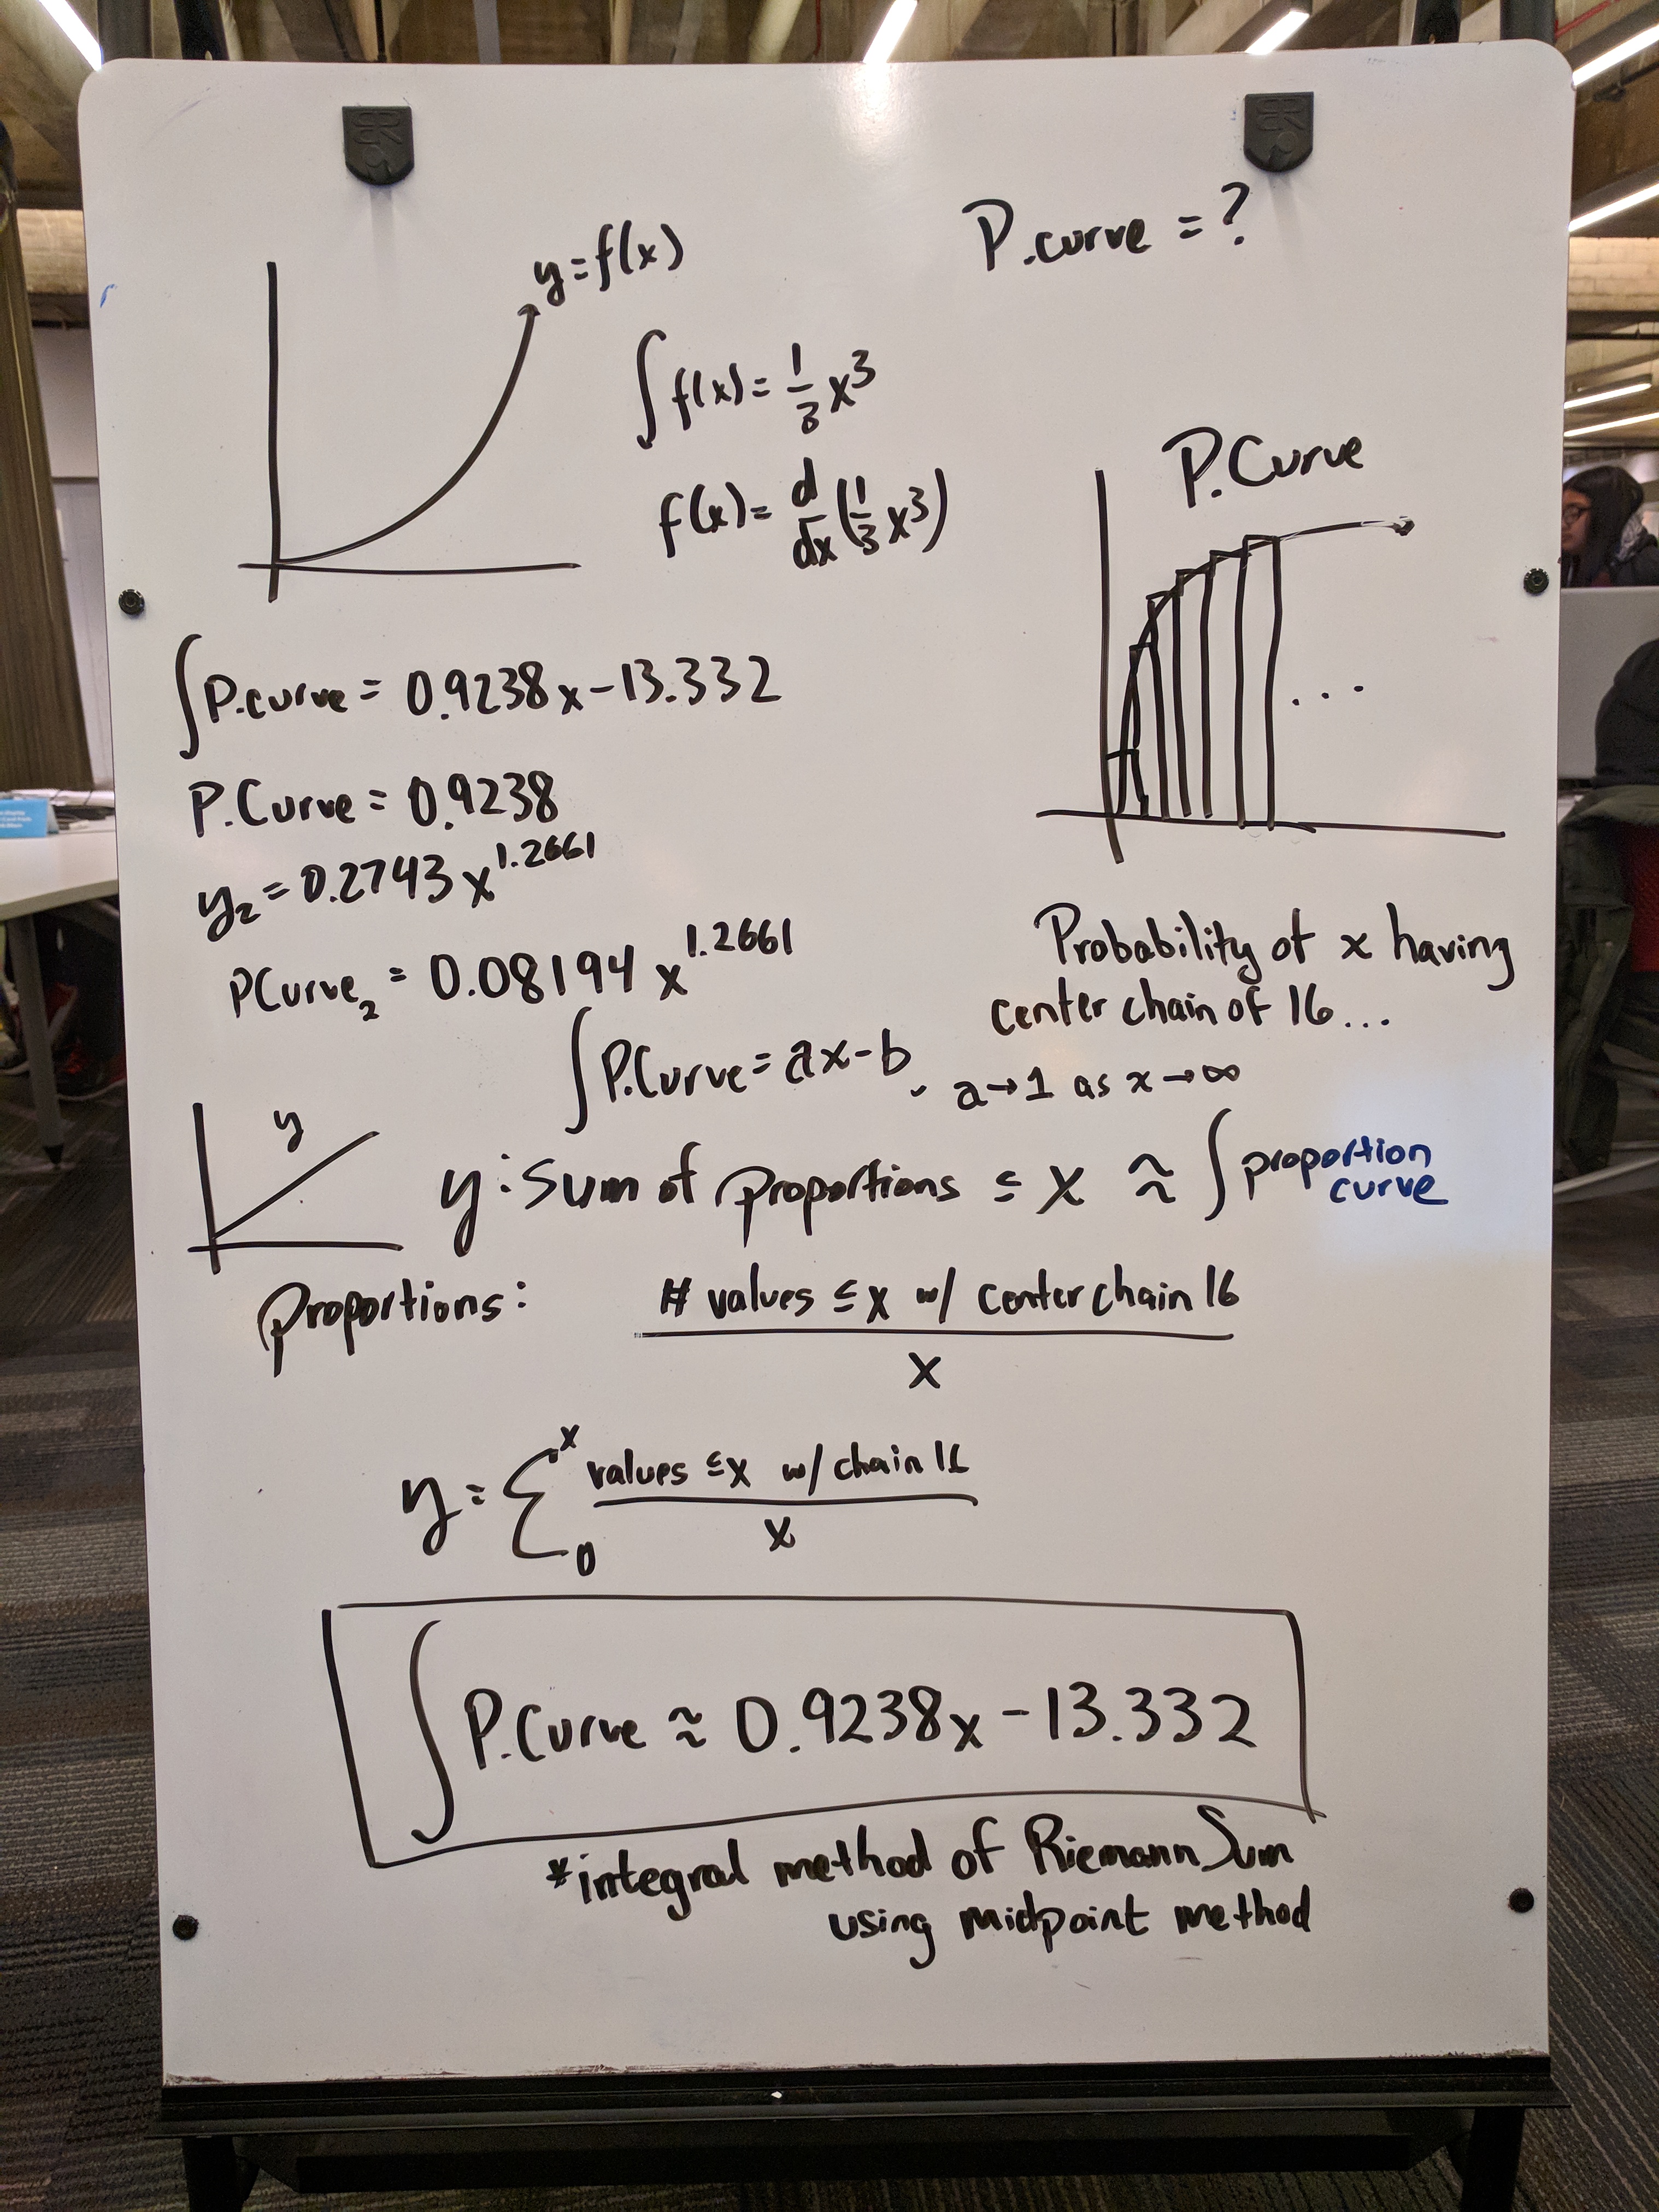 P.curve = ?
y=f(x)
∫f(x)= 1/3 x³
f(x)= d/dx (1/3 x³)
P.Curve
∫P.curve = 0.9238x-13.332
...
P.Curve = 0.9238
y₂ = 0.2743 x^1.2661
PCurve₂ = 0.08194 x^1.2661
Probability of x having
center chain of 16...
∫P.Curve = ax-b, a→1 as x→∞
y
y: Sum of proportions ≤ x ≈ ∫proportion
curve
Proportions: # values ≤x w/ center chain 16
x
y = Σ₀ˣ values ≤x w/ chain 16
x
∫P.Curve ≈ 0.9238x-13.332
*integral method of Riemann Sum
using midpoint method